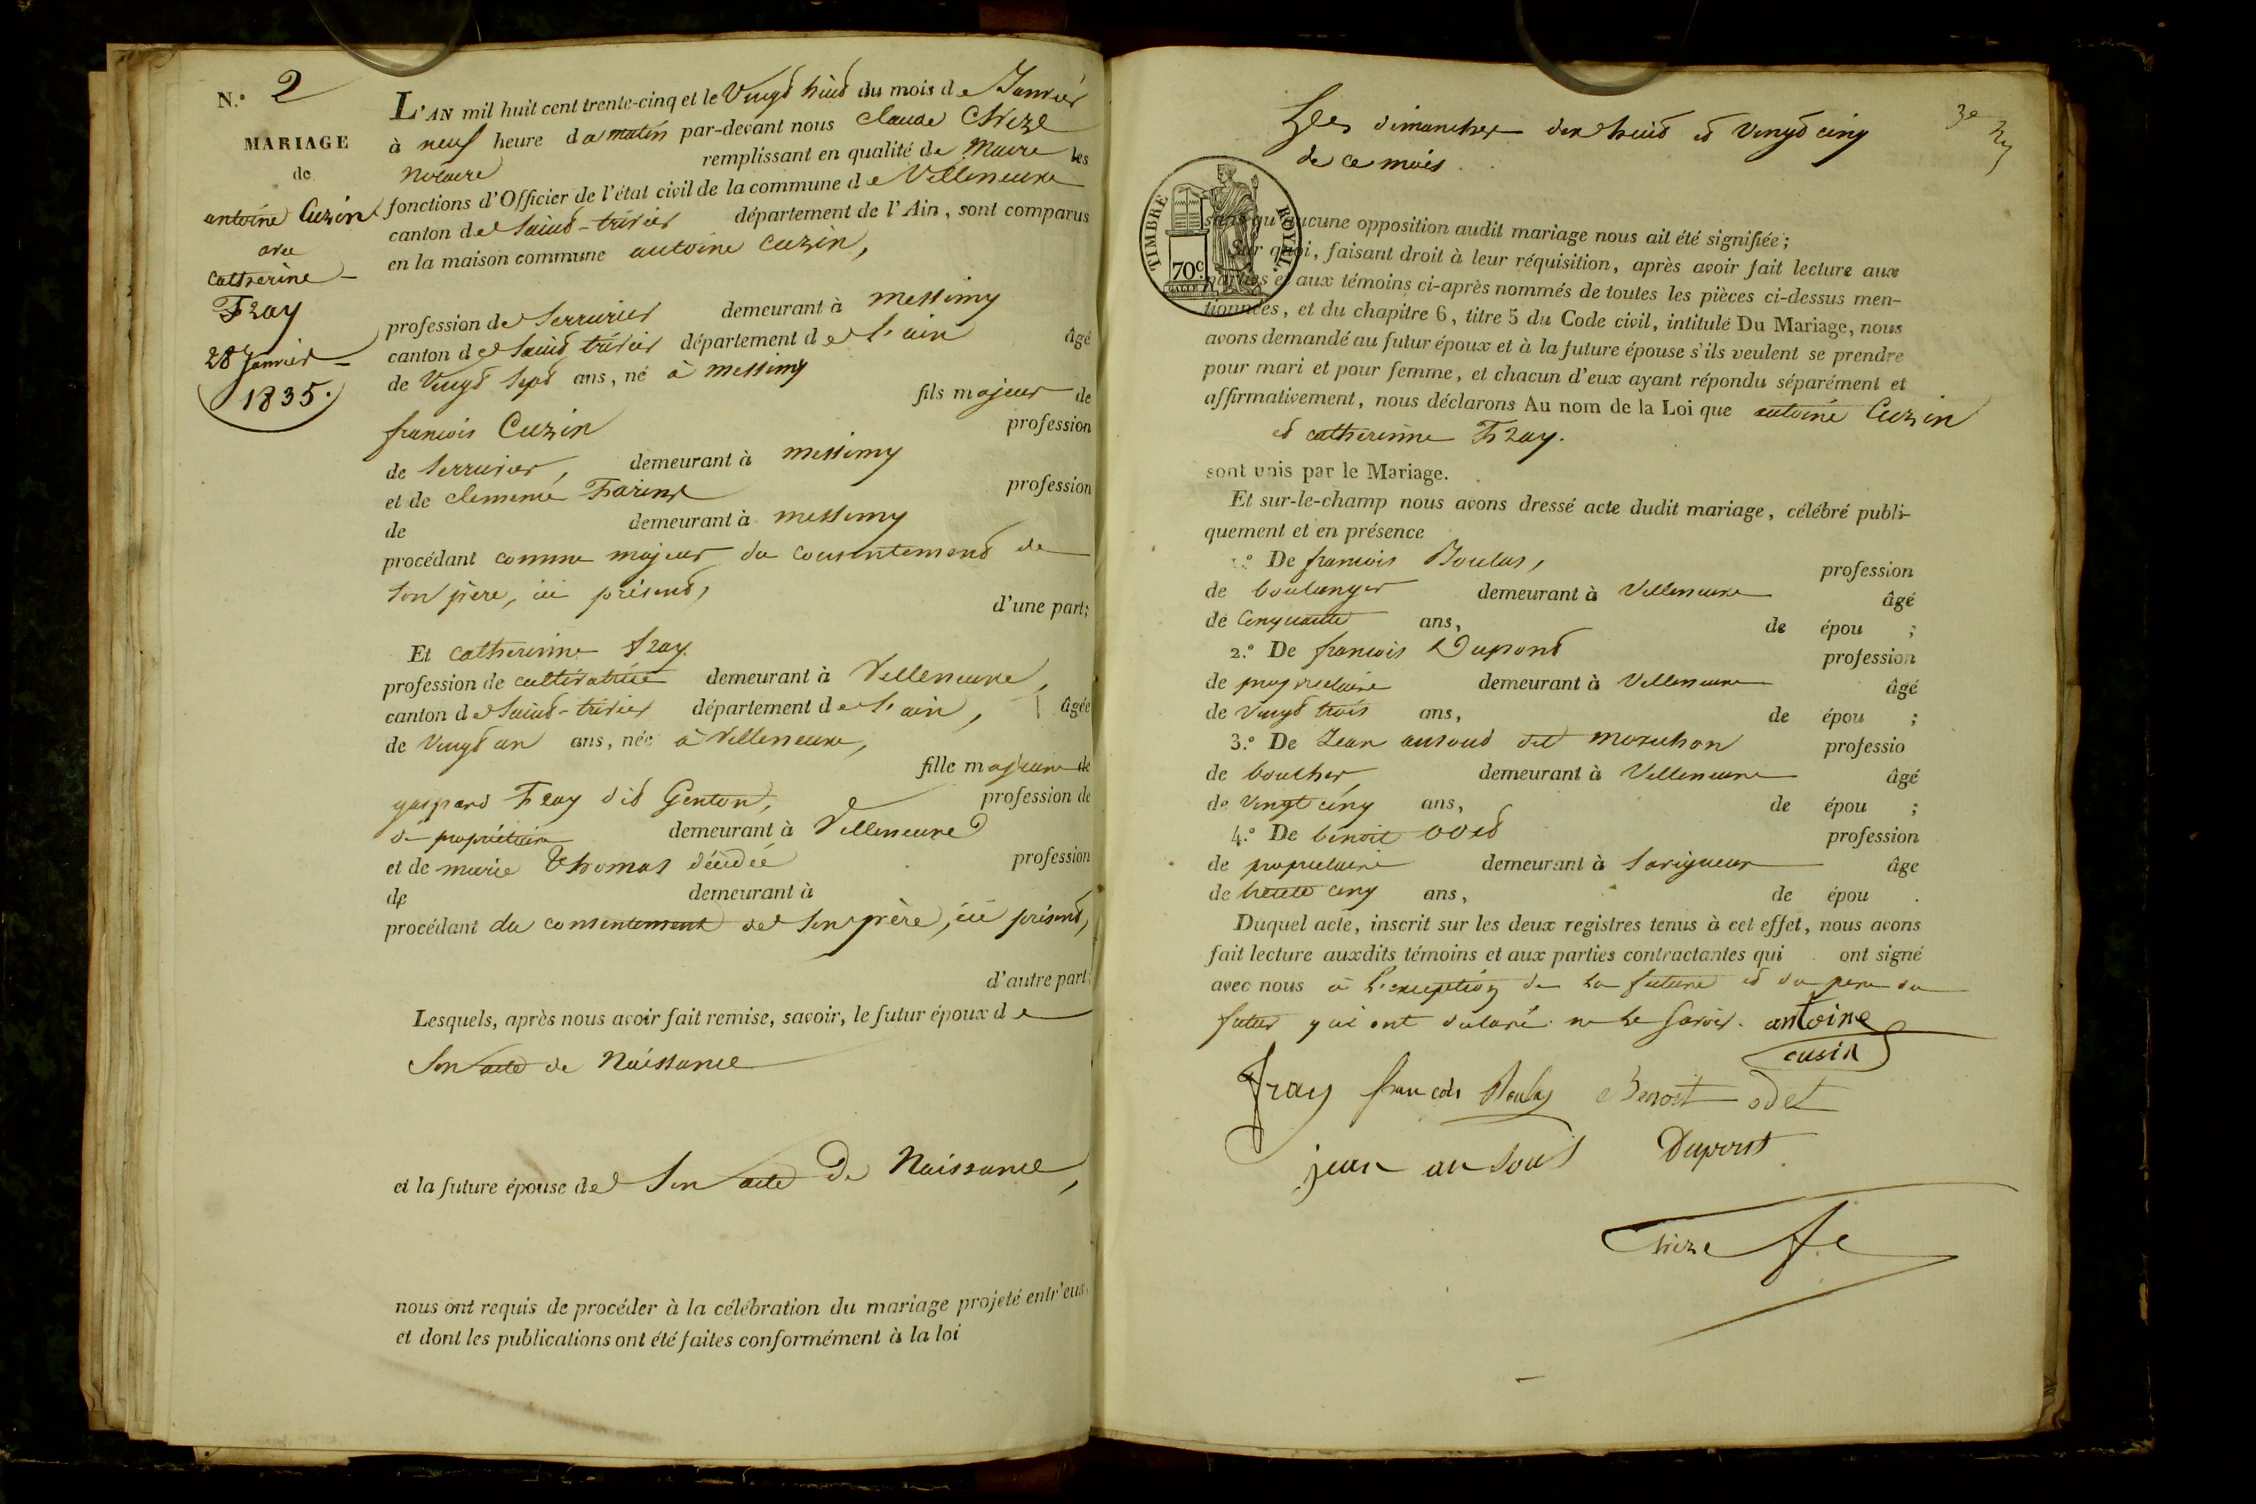 N.° 2
MARIAGE
de
antoine Cuzin
avec
catherine
Fray
28 Janvier
1835.
L'AN mil huit cent trente-cinq et le Vingt huit du mois de Janvier
à neuf heure du matin par-devant nous Claude Chize
Notaire remplissant en qualité de Maire les
fonctions d'Officier de l'état civil de la commune de Villeneuve
canton de Saint-trivier département de l'Ain, sont comparus
en la maison commune antoine Cuzin,
profession de Serrurier demeurant à messimy
canton de Saint trivier département de L'ain âgé
de Vingt Sept ans, né à messimy
fils majeur de
francois Cuzin profession
de Serrurier, demeurant à messimy
et de clemence profession
de demeurant à messimy
procédant comme majeur du consentement de
Son père, ici présent,
d'une part;
Et catherinne fray
profession de cultivatrice demeurant à Villeneuve,
canton de Saint-trivier département de L'ain, âgée
de Vingt un ans, née à Villeneuve,
fille majeure de
gaspard Fray dit Genton, profession de
de propriétaire demeurant à Villeneuve
et de marie Thomas décédée profession
de demeurant à
procédant du consentement de Son père, ici présent,
d'autre part;
Lesquels, après nous avoir fait remise, savoir, le futur époux de
Son acte de Naissance
et la future épouse de Son acte De Naissance,
nous ont requis de procéder à la célébration du mariage projeté entr'eux,
et dont les publications ont été faites conformément à la loi
Les dimanches dix huit et Vingt cinq
de ce mois.
TIMBRE ROYAL.
70 c.
sans qu'aucune opposition audit mariage nous ait été signifiée;
Sur quoi, faisant droit à leur réquisition, après avoir fait lecture aux
parties et aux témoins ci-après nommés de toutes les pièces ci-dessus men-
tionnées, et du chapitre 6, titre 5 du Code civil, intitulé Du Mariage, nous
avons demandé au futur époux et à la future épouse s'ils veulent se prendre
pour mari et pour femme, et chacun d'eux ayant répondu séparément et
affirmativement, nous déclarons Au nom de la Loi que antoine Cuzin
et catherinne Fray.
sont unis par le Mariage.
Et sur-le-champ nous avons dressé acte dudit mariage, célébré publi-
quement et en présence
1.° De francois Boulas, profession
de boulanger demeurant à Villeneuve âgé
de Cinquante ans, de épou ;
2.° De francois Dupont profession
de propriétaire demeurant à Villeneuve âgé
de Vingt trois ans, de épou ;
3.° De Jean dit professio
de boucher, demeurant à Villeneuve âgé
de Vingt cinq ans, de épou ;
4.° De benoit odet profession
de propriétaire demeurant à Savigneux âgé
de trente cinq ans, de épou .
Duquel acte, inscrit sur les deux registres tenus à cet effet, nous avons
fait lecture auxdits témoins et aux parties contractantes qui ont signé
avec nous à L'exception de La future et du père du
futur qui ont déclaré ne Le Savoir. antoine
cusin
fray francois Boulas Benoit odet
jean Dupont
Chize